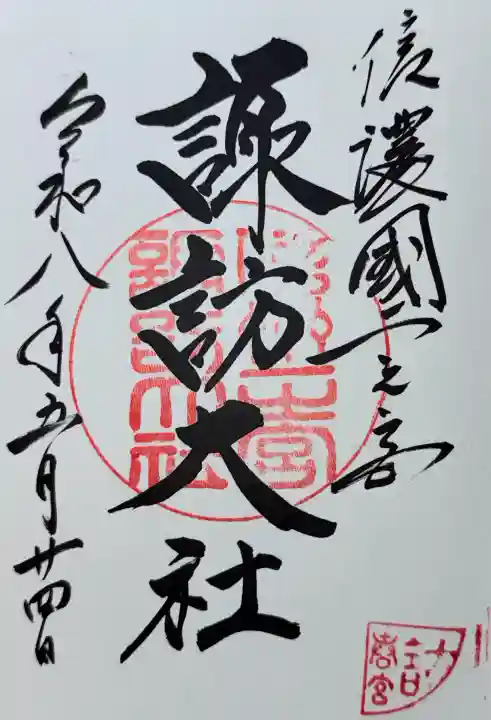 信濃國一之宮
諏訪大社
令和八年五月廿四日
諏訪大社
春宮